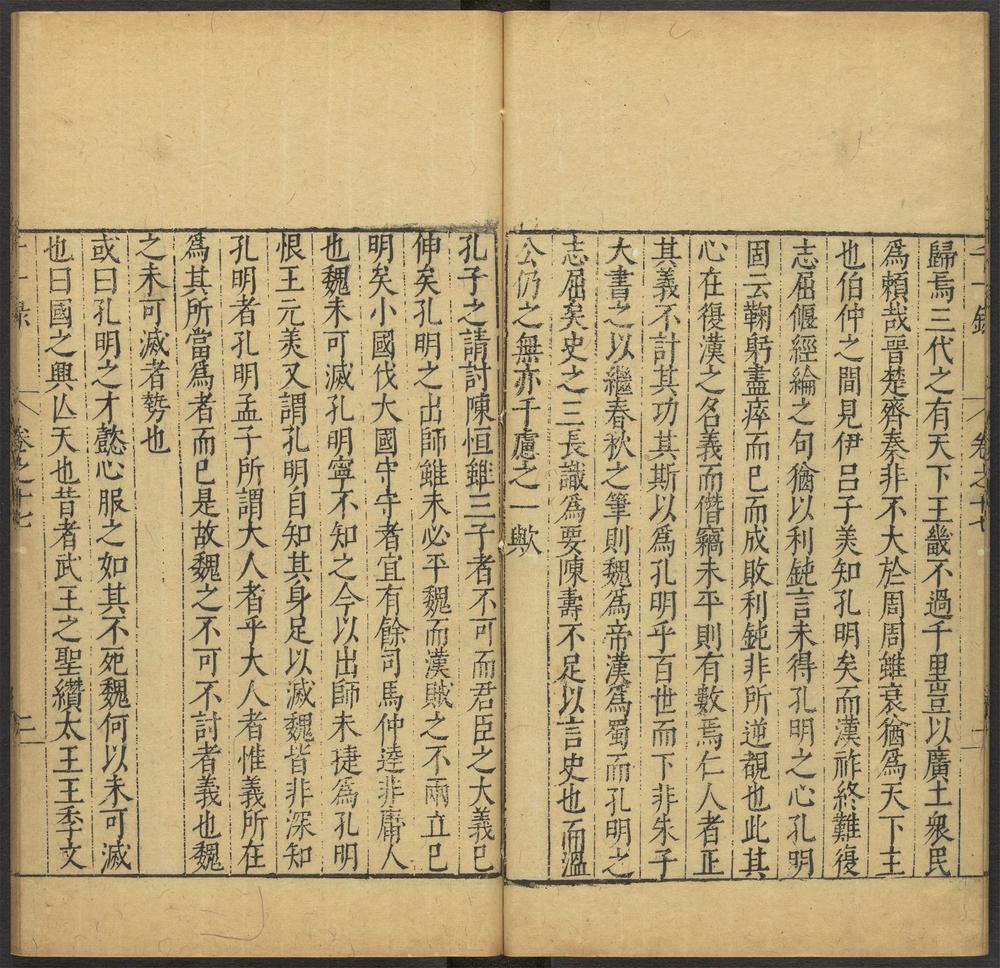 千一錄 卷之十七
歸焉三代之有天下王畿不過千里豈以廣土衆民
爲賴哉晉楚齊秦非不大於周周雖衰猶爲天下主
也伯仲之間見伊呂子美知孔明矣而漢祚終難復
志屈偃經綸之句猶以利鈍言未得孔明之心孔明
固云鞠躬盡瘁而已而成敗利鈍非所逆覩也此其
心在復漢之名義而僭竊未平則有數焉仁人者正
其義不計其功其斯以爲孔明乎百世而下非朱子
大書之以繼春秋之筆則魏爲帝漢爲蜀而孔明之
志屈矣史之三長識爲要陳壽不足以言史也而溫
公仍之無亦千慮之一歟
孔子之請討陳恒雖三子者不可而君臣之大義已
伸矣孔明之出師雖未必平魏而漢賊之不兩立已
明矣小國伐大國守守者宜有餘司馬仲達非庸人
也魏未可滅孔明寧不知之今以出師未捷爲孔明
恨王元美又謂孔明自知其身足以滅魏皆非深知
孔明者孔明孟子所謂大人者乎大人者惟義所在
爲其所當爲者而已是故魏之不可不討者義也魏
之未可滅者勢也
或曰孔明之才懿心服之如其不死魏何以未可滅
也曰國之興亾天也昔者武王之聖纘太王王季文
千一錄 卷之十七 二